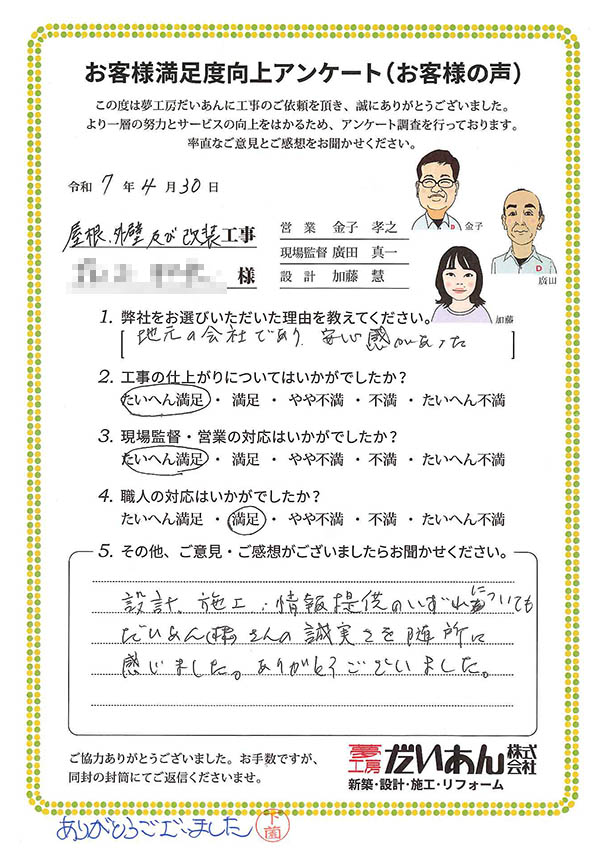 お客様満足度向上アンケート（お客様の声）
この度は夢工房だいあんに工事のご依頼を頂き、誠にありがとうございました。
より一層の努力とサービスの向上をはかるため、アンケート調査を行っております。
率直なご意見とご感想をお聞かせください。
令和 7 年 4 月 30 日
屋根、外壁及び改装工事
様
営業 金子 孝之
現場監督 廣田 真一
設計 加藤 慧
D 金子
D
廣田
加藤
1. 弊社をお選びいただいた理由を教えてください。
[地元の会社であり、安心感があった]
2. 工事の仕上がりについてはいかがでしたか？
たいへん満足・満足・やや不満・不満・たいへん不満
3. 現場監督・営業の対応はいかがでしたか？
たいへん満足・満足・やや不満・不満・たいへん不満
4. 職人の対応はいかがでしたか？
たいへん満足・満足・やや不満・不満・たいへん不満
5. その他、ご意見・ご感想がございましたらお聞かせください。
設計、施工、情報提供のいずれについても
だいあんさんの誠実さを随所に
感じました。ありがとうございました。
ご協力ありがとうございました。お手数ですが、
同封の封筒にてご返信くださいませ。
夢工房 だいあん 株式会社
新築・設計・施工・リフォーム
ありがとうございました 下薗